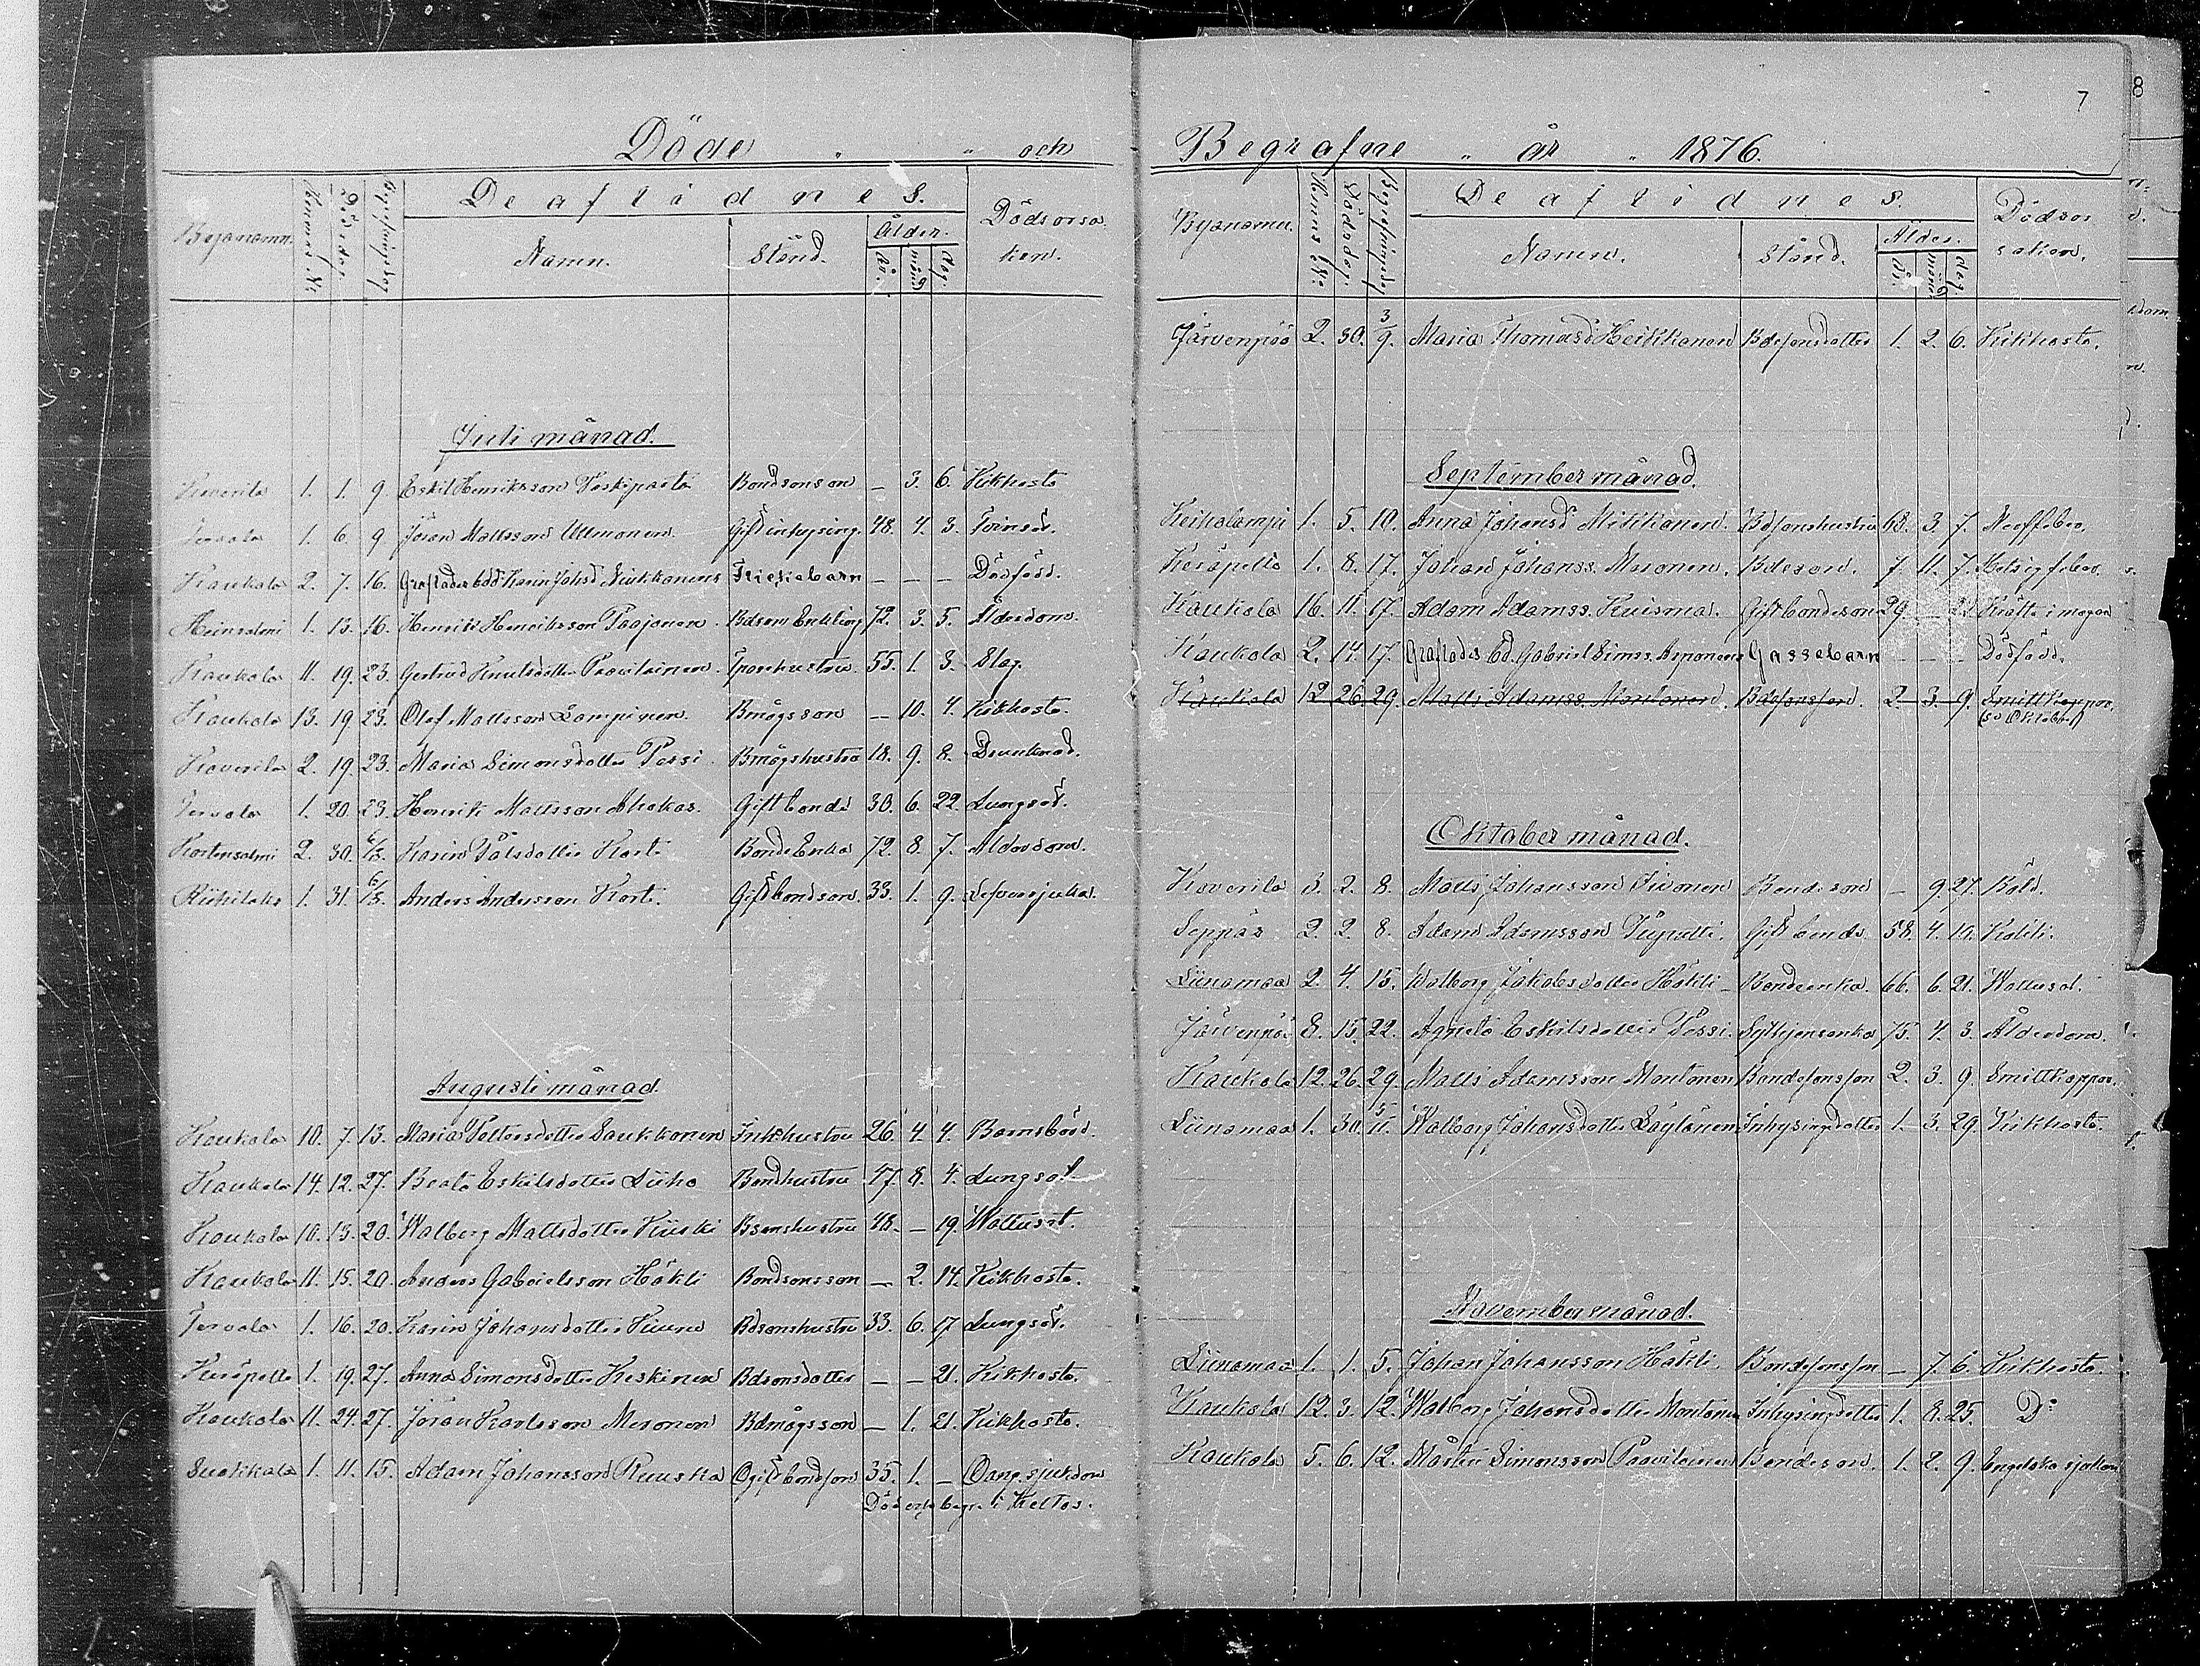 7
8
Döde " " och
Begrafne " år " 1876.
Byanamn. Hemans No. Dödsdag. Begrafningsdag De aflidnes. Dödsorsa
Namn. Stånd. Ålder. ken.
år. månad dag.
Juli månad.
Koverila 1. 1. 9. Eskil Henriksson Koskipasta Bondsonson — 3. 6. Kikhosta
Tervola 1. 6. 9 Jöran Mattsson Ullmonen Gift inhysing. 48. 4. 3. Tvinsot.
Kaukola 2. 7. 16. Grafladesbdd Karin Johsd Nirkkonens Flickebarn — — — Dödfödd.
Heinsalmi 1. 13. 16. Henrik Henriksson Paajanen Bdson Enkling 72. 3. 5. Ålderdom.
Kaukola 11. 19. 23. Gertrud Knutsdotter Paavilainen. Sporrhustru. 55. 1. 3. Slag.
Kaukola 13. 19 23. Olof Mattsson Lampinen. Bmågsson — 10. 4. Kikhosta.
Koverila 2. 19. 23. Maria Simonsdotter Pessi Bmågshustru 18. 9. 8. Drunknad.
Tervola 1. 20. 23. Henrik Mattsson Ahokas. Gift bonde 30. 6. 22. Lungsot.
Kortensalmi 2. 30. 6/8. Karin Pålsdotter Korti Bonde Enka 72. 8. 7. Ålderdom.
Riihilaks 1. 31. 6/8. Anders Andersson Korti. Gift bondson. 33. 1. 9. Lefversjuka.
Augusti månad.
Kaukola 10. 7. 13. Maria Pettersdotter Saukkonen Inhhustru 26. 4. 4. Barnsbörd.
Kaukola 14. 12. 27. Beata Eskilsdotter Liiho Bondhustru 47. 8. 4. Lungsot
Kaukola 10. 13. 20. Walborg Mattsdotter Kiiski Bsonshustru 48. — 19. Wattusot.
Kaukola 11. 15. 20. Anders Gabrielsson Häkli Bondsonsson — 2. 14. Kikhosta.
Tervola 1. 16. 20. Karin Johansdotter Kiuru Bdsonshustru 33. 6. 17. Lungsot.
Keräpelto 1. 19. 27. Anna Simonsdotter Keskinen Bdsonsdotter — — 21. Kikhosta.
Kaukola 11. 24. 27. Jöran Karlsson Meronen Bdmågsson — 1. 21. Kikhosta.
Suokkala 1. 11. 15. Adam Johansson Ruuska Ogift bondson 35. 1. — Oang. sjukdom
Död och begr. i Keltos.
Byanamn. Hemans No. Dödsdag. Begrafningsdag De aflidnes. Dödsor
Namn. Stånd. Ålder. saken.
år. månad dag.
Järvenpää 2. 30. 3/9. Maria Thomasd Heikkonen Bdesonsdotter 1. 2. 6. Kikhosta.
September månad.
Keikolampi 1. 5. 10. Anna Johansd Mikkonen. Bdsonshustru 68. 3. 7. Nerffeber.
Keräpelto 1. 8. 17. Johan Johanss. Meronen. Bdeson. 7. 11. 7. Hetsigfeber.
Kaukola 16. 11. 17. Adam Adamss. Kuisma. Gift bondeson 29. — 21. Kräfta i magen
Kaukola 2. 14. 17. Graflades bd. Gabriel Simss. Asponens Gossebarn — — — Dödfödd.
Kaukola 12 26 29. Matts Adamss. Montonen. Bdesonsson. 2. 3. 9. Smittkoppor.
(se Oktober)
Oktober månad.
Koverila 3. 2. 8. Matts Johansson Sivonen Bondeson — 9. 27. Håld.
Seppäs 2. 2. 8. Adam Adamsson Pupulti. Gift bonde. 58. 4. 10. Kolik.
Liinamaa 2. 4. 15. Walborg Jakobsdotter Häkli — Bondeenka. 66. 6. 21. Wattusot.
Järvenpää 8. 15. 22. Agneta Eskilsdotter Pessi. Sytningsenka 75. 4. 3. Ålderdom.
Kaukola 12. 26. 29. Matts Adamsson Montonen Bondesonsson 2. 3. 9. Smittkoppor.
Liinamaa 1. 30. 5/11. Walborg Johansdotter Säylänen Inhysingsdotter 1. 3. 29. Kikhosta.
November månad.
Liinamaa 1. 1. 5. Johan Johansson Häkli. Bondesonsson — 7. 6. Kikhosta.
Kaukola 12. 3. 12. Walborg Johansdotter Montonen Inhysingsdotter 1. 8. 25. Do
Kaukola 5. 6. 12. Mårten Simonsson Paavilainen Bondeson. 1. 2. 9. Engelska sjukan